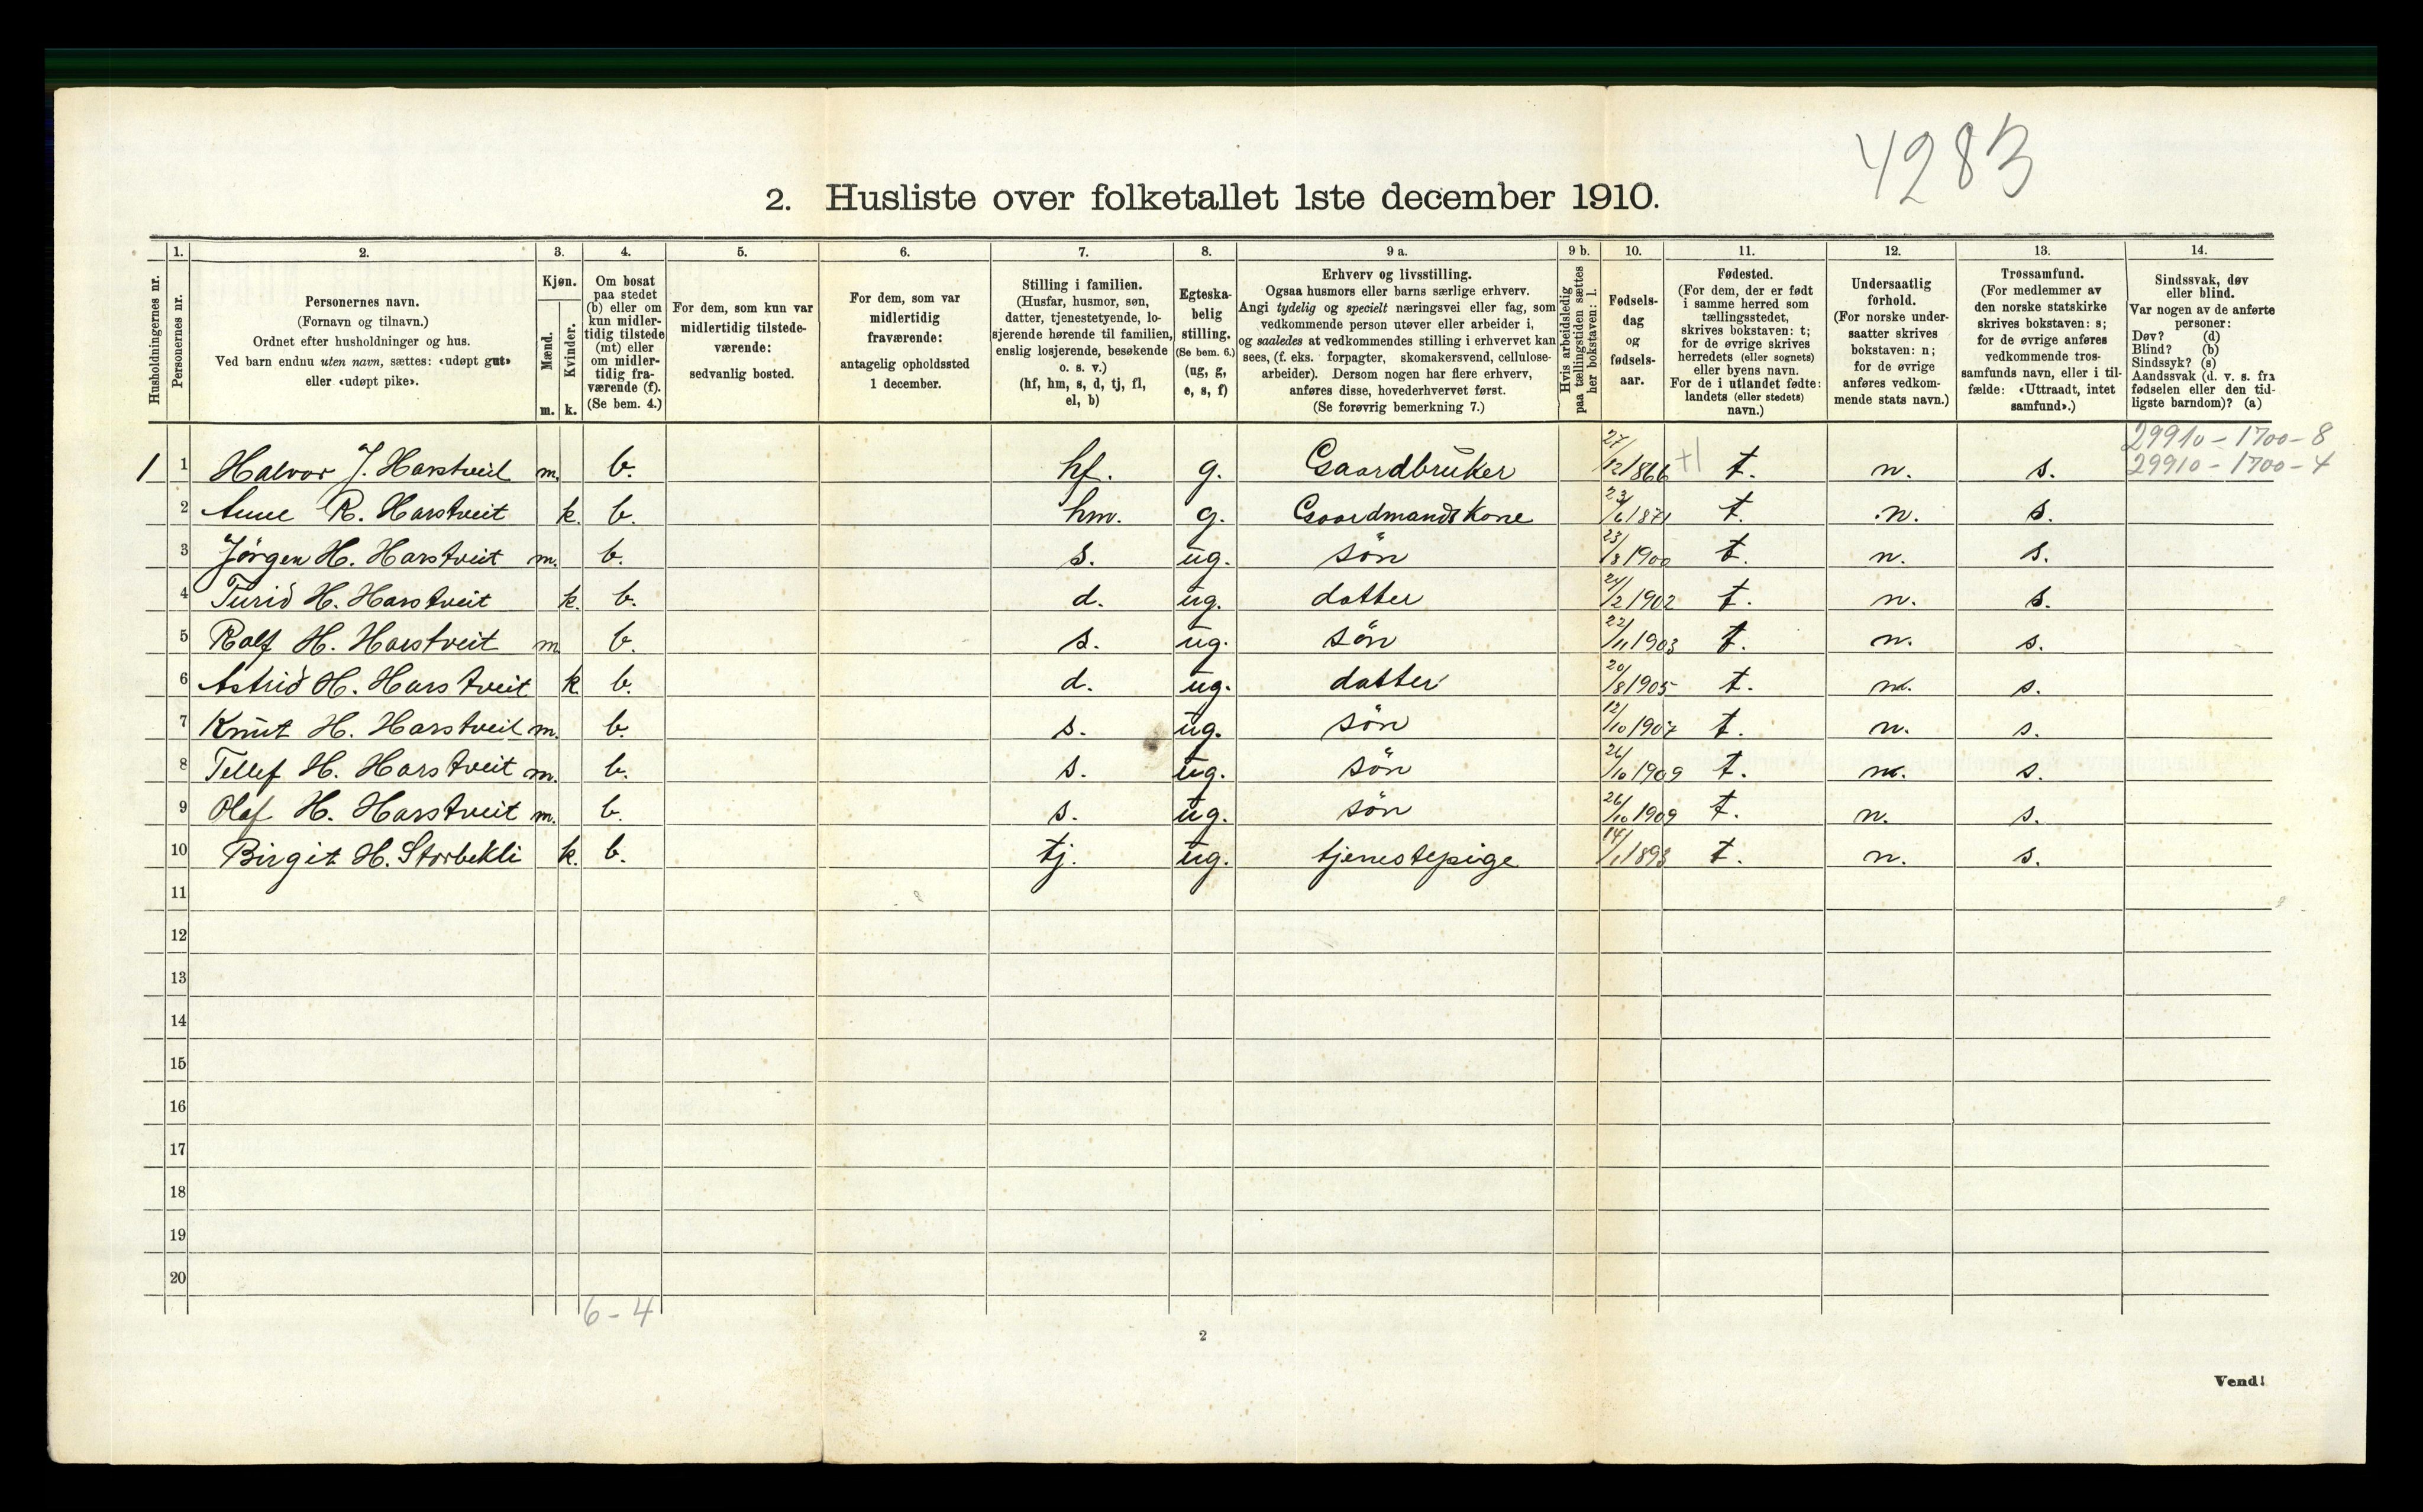 4283
2. Husliste over folketallet 1ste december 1910.
1. 2. 3. 4. 5. 6. 7. 8. 9 a. 9 b. 10. 11. 12. 13. 14.
Husholdningernes nr.
Personernes nr.
Personernes navn.
(Fornavn og tilnavn.)
Ordnet efter husholdninger og hus.
Ved barn endnu uten navn, sættes: «udøpt gut»
eller «udøpt pike».
Kjøn.
Mænd.
Kvinder.
m. k.
Om bosat
paa stedet
(b) eller om
kun midler-
tidig tilstede
(mt) eller
om midler-
tidig fra-
værende (f).
(Se bem. 4.)
For dem, som kun var
midlertidig tilstede-
værende:
sedvanlig bosted.
For dem, som var
midlertidig
fraværende:
antagelig opholdssted
1 december.
Stilling i familien.
(Husfar, husmor, søn,
datter, tjenestetyende, lo-
sjerende hørende til familien,
enslig losjerende, besøkende
o. s. v.)
(hf, hm, s, d, tj, fl,
el, b)
Egteska-
belig
stilling.
(Se bem. 6.)
(ug, g,
e, s, f)
Erhverv og livsstilling.
Ogsaa husmors eller barns særlige erhverv.
Angi tydelig og specielt næringsvei eller fag, som
vedkommende person utøver eller arbeider i,
og saaledes at vedkommendes stilling i erhvervet kan
sees, (f. eks. forpagter, skomakersvend, cellulose-
arbeider). Dersom nogen har flere erhverv,
anføres disse, hovederhvervet først.
(Se forøvrig bemerkning 7.)
Hvis arbeidsledig
paa tællingstiden sættes
her bokstaven: l.
Fødsels-
dag
og
fødsels-
aar.
Fødested.
(For dem, der er født
i samme herred som
tællingsstedet,
skrives bokstaven: t;
for de øvrige skrives
herredets (eller sognets)
eller byens navn.
For de i utlandet fødte:
landets (eller stedets)
navn.)
Undersaatlig
forhold.
(For norske under-
saatter skrives
bokstaven: n;
for de øvrige
anføres vedkom-
mende stats navn.)
Trossamfund.
(For medlemmer av
den norske statskirke
skrives bokstaven: s;
for de øvrige anføres
vedkommende tros-
samfunds navn, eller i til-
fælde: «Uttraadt, intet
samfund».)
Sindssvak, døv
eller blind.
Var nogen av de anførte
personer:
Døv? (d)
Blind? (b)
Sindssyk? (s)
Aandssvak (d. v. s. fra
fødselen eller den tid-
ligste barndom)? (a)
29910-1700-8
29910-1700-4
1 1 Halvor J. Harstveit m. b. hf. g. Gaardbruker 27/12 1866 +1 t. n. s.
2 Anne R. Harstveit k. b. hm. g. Gaardmandskone 23/6 1871 t. n. s.
3 Jörgen H. Harstveit m. b. s. ug. sön 23/8 1900 t. n. s.
4 Turid H. Harstveit k. b. d. ug. datter 24/2 1902 t. n. s.
5 Rolf H. Harstveit m b. s. ug. sön 22/11 1903 t. n. s.
6 Astrid H. Harstveit k b. d. ug. datter 20/8 1905 t. n. s.
7 Knut H. Harstveit m. b. s. ug. sön 12/10 1907 t. n. s.
8 Tellef H. Harstveit m. b. s. ug. sön 26/10 1909 t. n. s.
9 Olaf H. Harstveit m. b. s. ug. sön 26/10 1909 t. n. s.
10 Birgit H. Storbekli k. b. tj. ug. tjenestepige 14/1 1893 t. n. s.
11
12
13
14
15
16
17
18
19
20
6-4
2
Vend!